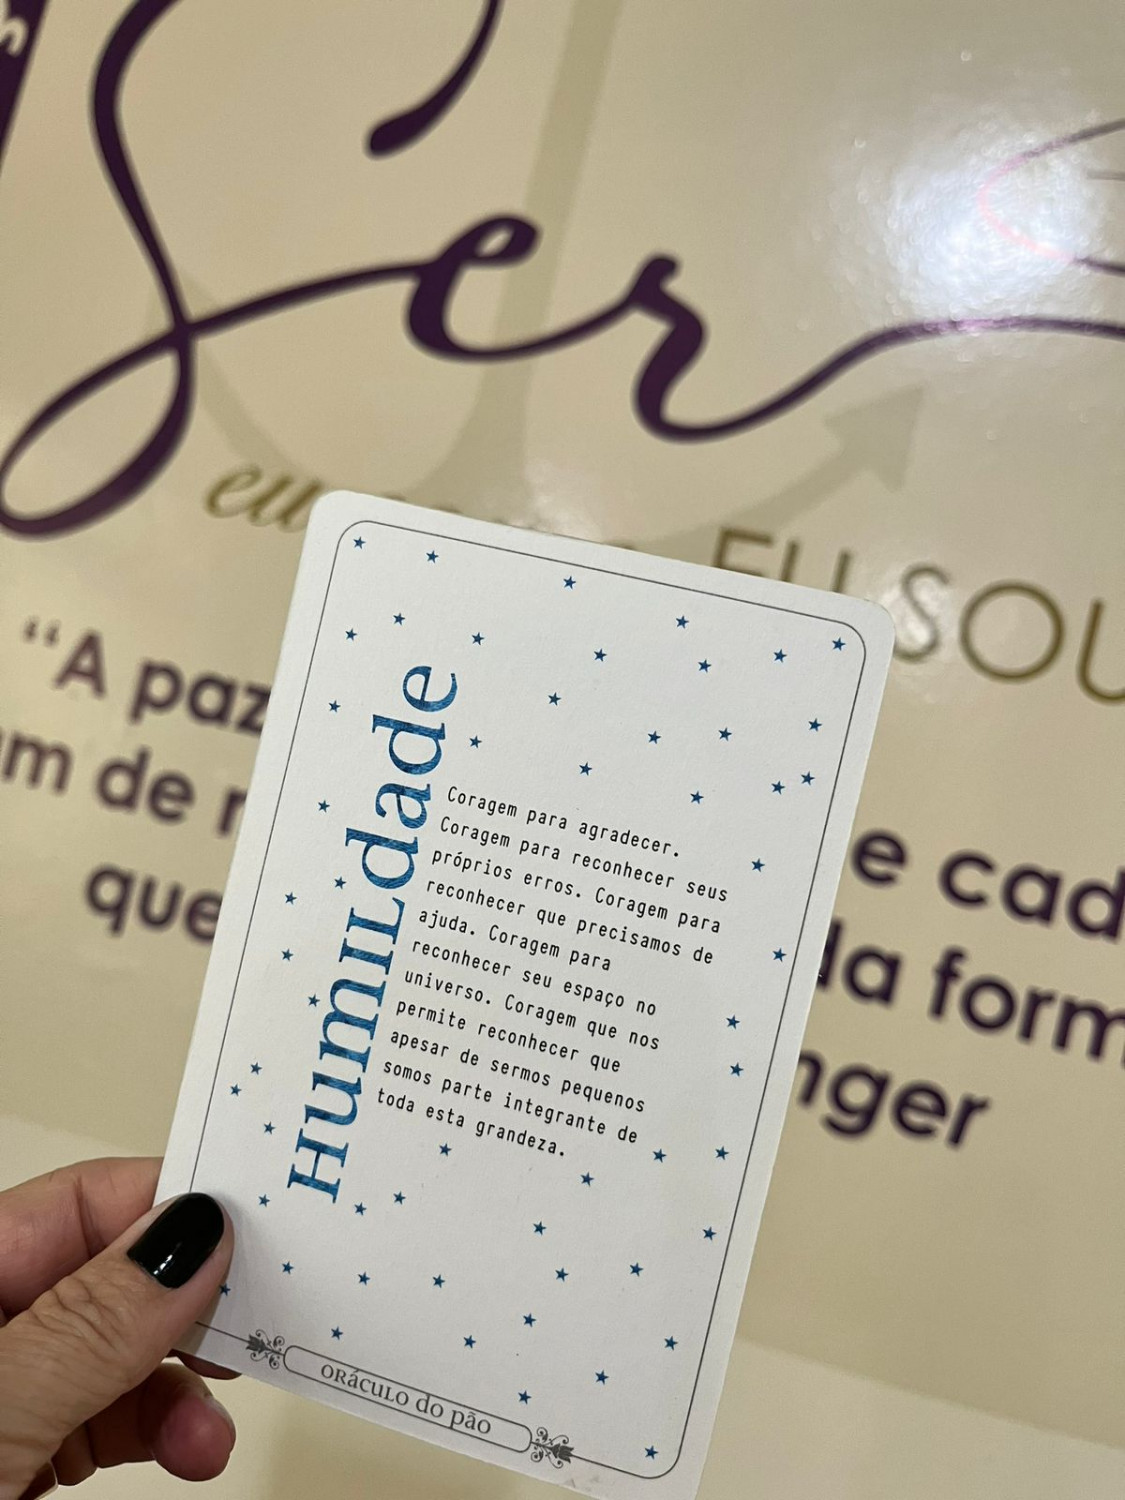 Ser
eu
EU SOU
"A paz
am de
que
e cad
da form
nger
HumiLdade
Coragem para agradecer.
Coragem para reconhecer seus
próprios erros. Coragem para
reconhecer que precisamos de
ajuda. Coragem para
reconhecer seu espaço no
universo. Coragem que nos
permite reconhecer que
apesar de sermos pequenos
somos parte integrante de
toda esta grandeza.
ORÁCULO do pão